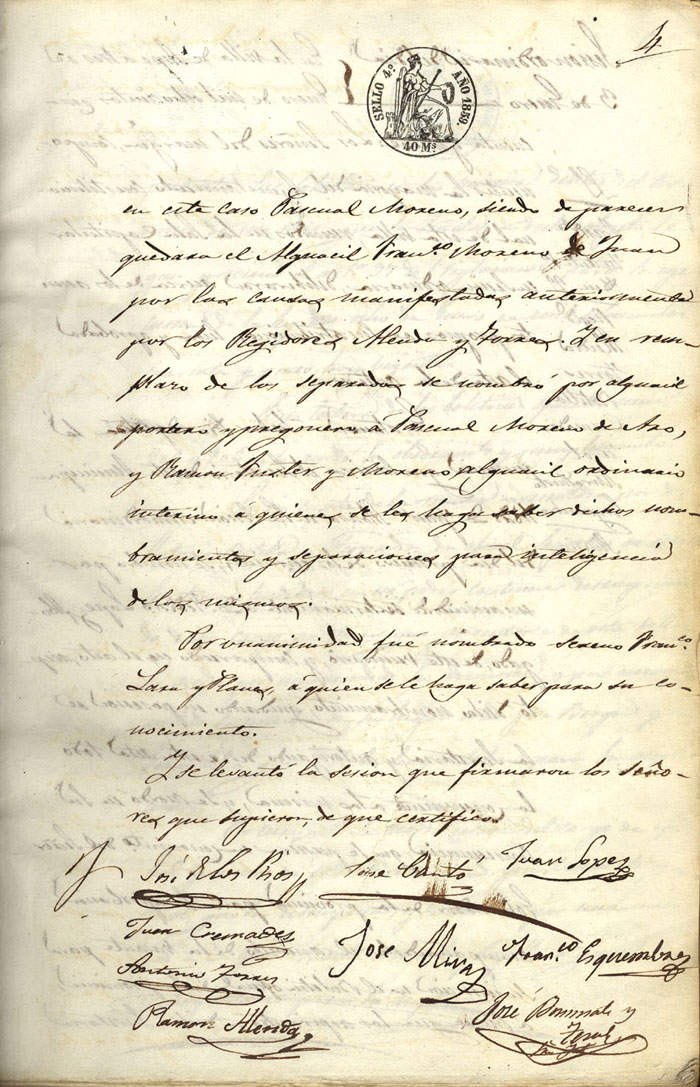 4
SELLO 4º AÑO 1859.
40 Ms
en este caso Pascual Moreno, siendo de parecer
quedara el Alguacil Franco Moreno de Juan
por las causas manifestadas anteriormente
por los Regidores Alenda y Torres. Y en reem-
plazo de los separados se nombró por alguacil
portero y pregonero á Pascual Moreno de Azo,
y Ramon Fuster y Moreno alguacil ordinario
interino á quienes se les haga saber dichos nom-
bramientos y separaciones para inteligencia
de los mismos.
Por unanimidad fué nombrado sereno Franco
Lara y Planes, á quien se le haga saber para su co-
nocimiento.
Y se levantó la sesion que firmaron los seño-
res que supieron, de que certifico.
José de los Rios
Jose Cantó
Juan Lopez
Juan Cremades
Jose Mira
Franco Esquembre
Antonio Torres
Ramon Alenda
José y